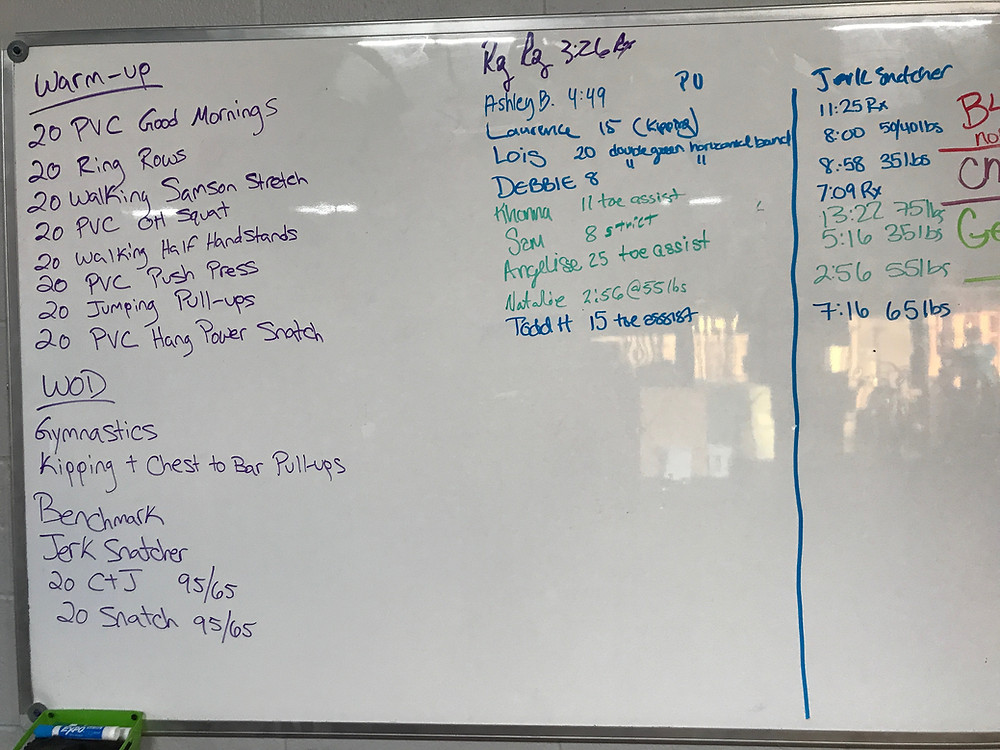 Warm-up
20 PVC Good Mornings
20 Ring Rows
20 Walking Samson Stretch
20 PVC OH Squat
20 Walking Half Handstands
20 PVC Push Press
20 Jumping Pull-ups
20 PVC Hang Power Snatch
WOD
Gymnastics
Kipping + Chest to Bar Pull-ups
Benchmark
Jerk Snatcher
20 C+J 95/65
20 Snatch 95/65
3:26 Rx
PU
Ashley B. 4:49
Laurence 15 (Kipping)
Lois 20 double green horizontal band
" "
DEBBIE 8
Khonna 11 toe assist
Sam 8 strict
Angelise 25 toe assist
Natalie 2:56 @ 55lbs
Todd H 15 toe assist
Jerk Snatcher
11:25 Rx
8:00 50/40lbs
8:58 35lbs
7:09 Rx
13:22 75lbs
5:16 35lbs
2:56 55lbs
7:16 65lbs
no
Ge
EXPO